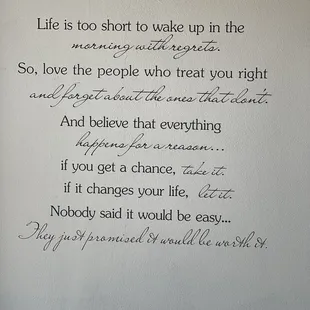 Life is too short to wake up in the
morning with regrets.
So, love the people who treat you right
and forget about the ones that don't.
And believe that everything
happens for a reason...
if you get a chance, take it.
if it changes your life, let it.
Nobody said it would be easy...
They just promised it would be worth it.